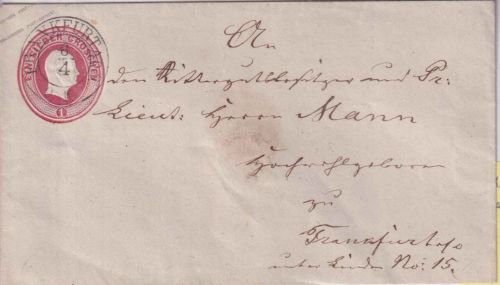 FRANKFURT
6
4
EIN SILBER GROSCHEN
1
An
den Rittergutsbesitzer und Pr:
Lieut: Herrn Mann
Hochwohlgeboren
zu
Frankfurt a/o
unter Linden No: 15.